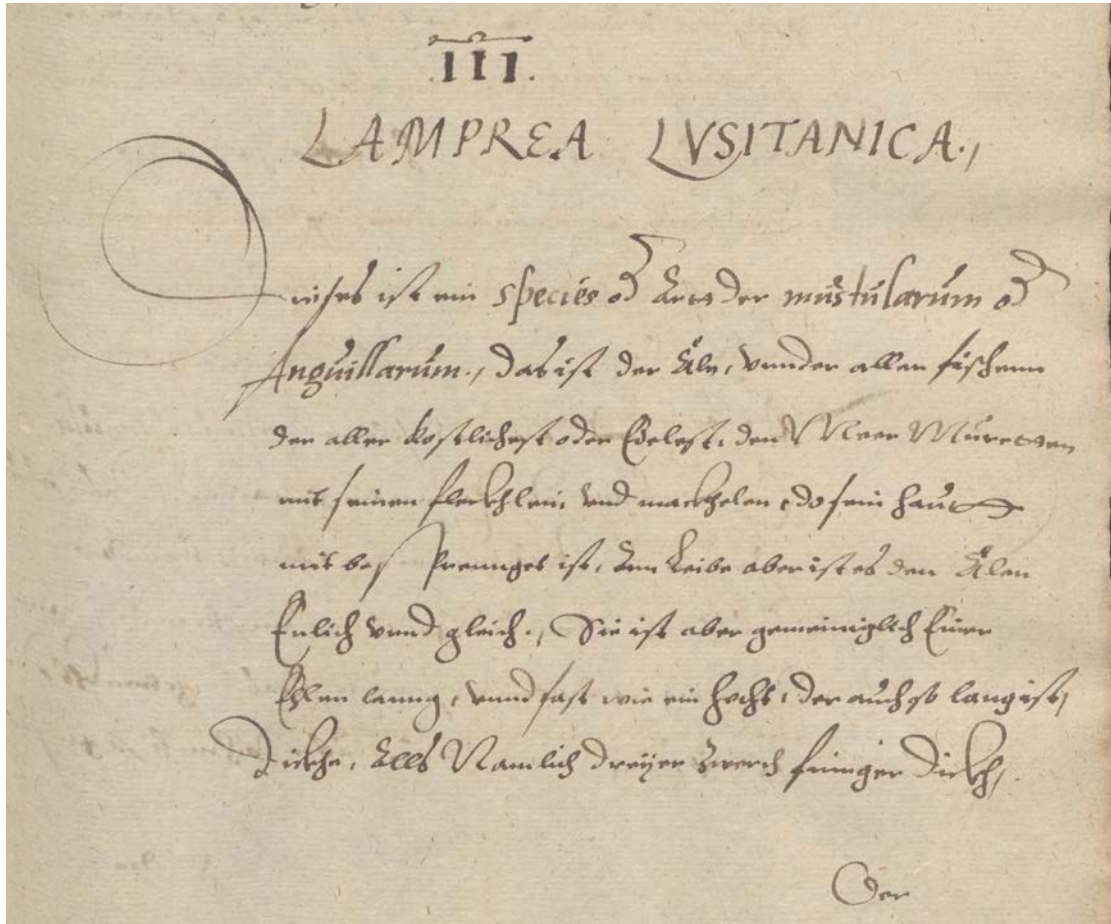 .III.
LAMPREA LVSITANICA.,
Dises ist ein species od Artt der mustularum od
Anguillarum., das ist der Äln, vnnder allen fischenn
der aller kostlichest oder Edelest, den Meer Muretten
mit seinen fleckhlein vnd mackhelen, do sein haut
mit besprennget ist, Am Leibe aber ist es den Älen
Enlich vnnd gleich., Sie ist aber gemeiniglich Einer
Ehlen lanng, vnnd fast wie ein hecht, der auch so lang ist,
dickhe, Alls Namlich dreyer zwerch finnger dickh,
Der